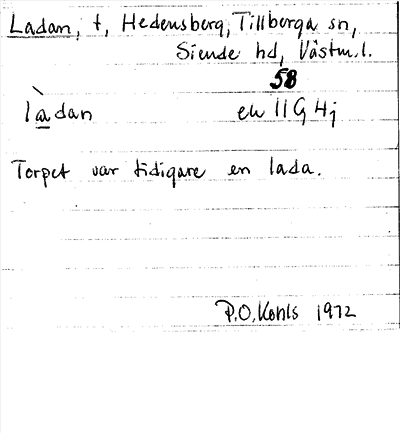 Ladan, t, Hedensberg, Tillberga sn,
Siende hd, Västm.l.
58
làdan
ek 11G 4j
Torpet var tidigare en lada.
P.O. Kohls 1972